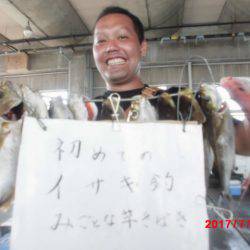 初めての
イサキ釣
みごとな竿さばき
2017/7/